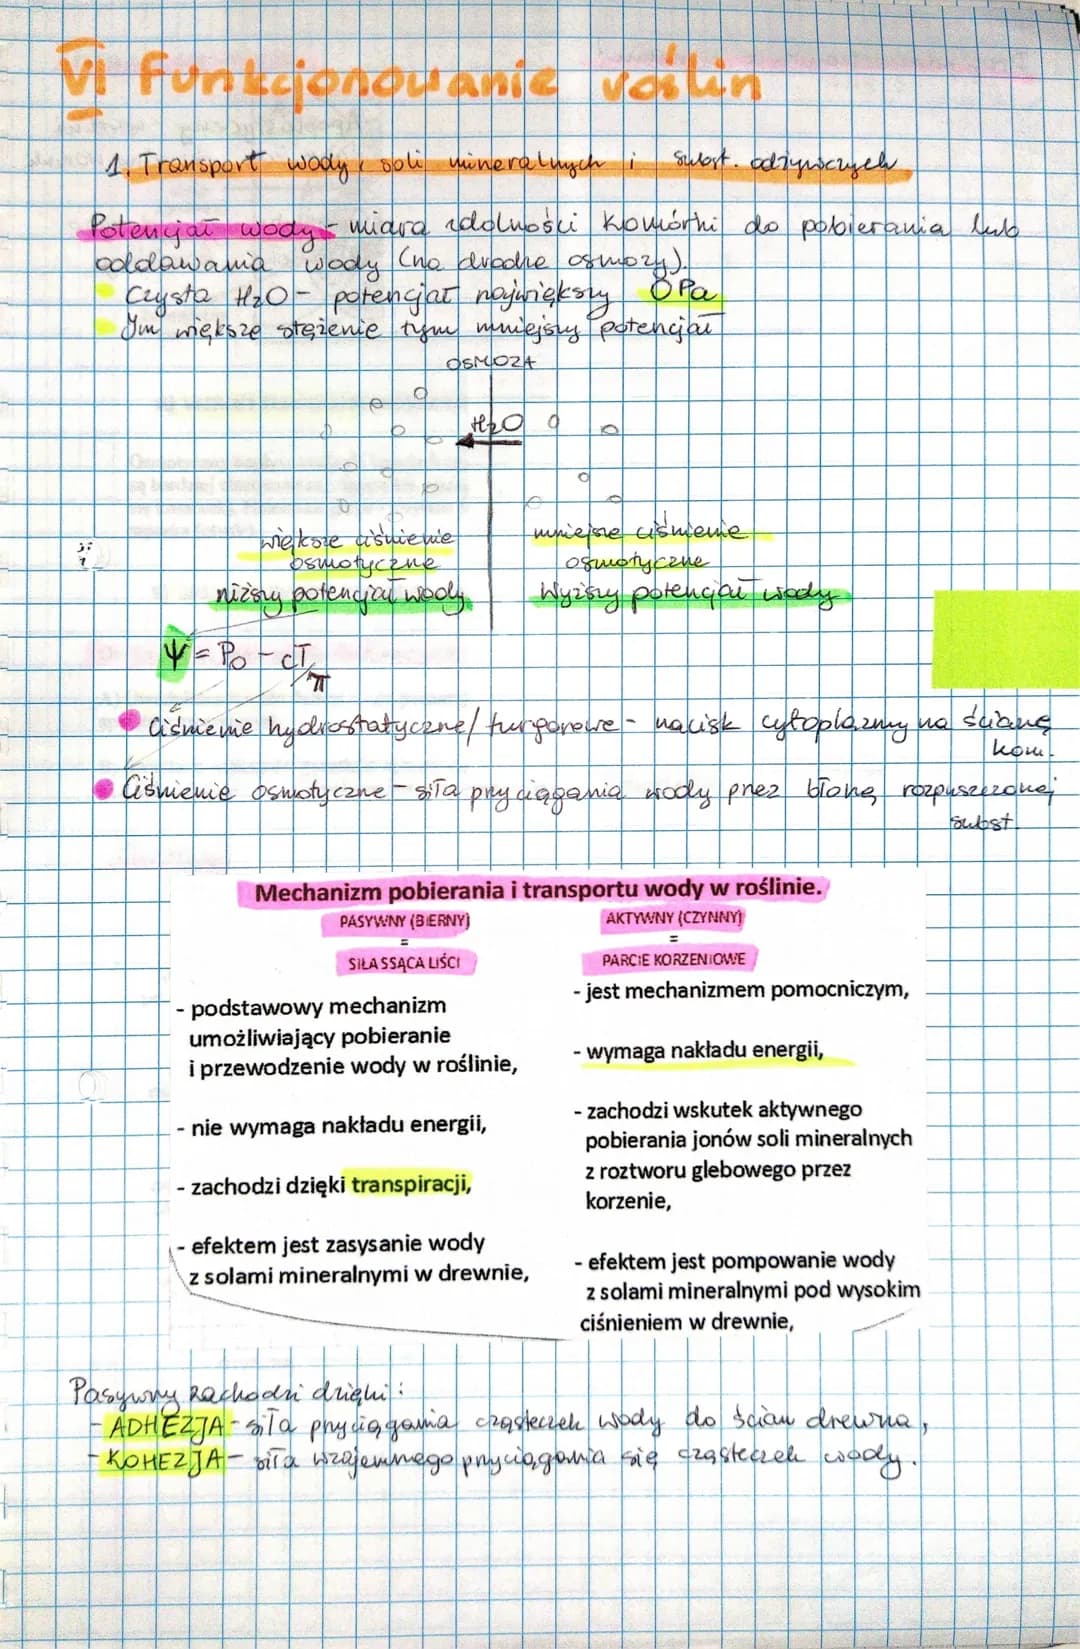 VI Funkcjonowanie roślin
1. Transport wody, soli mineralnych i subst. odżywczych
Potencjał wody - miara zdolności komórki do pobierania lub
oddawania wody (na drodze osmozy).
Czysta H₂O - potencjał największy 0 Pa
Im większe stężenie tym mniejszy potencjał
OSMOZA
H₂O
większe ciśnienie
osmotyczne
niższy potencjał wody
mniejsze ciśnienie
osmotyczne
Wyższy potencjał wody
Ψ = P₀ - cT
π
Ciśnienie hydrostatyczne/turgorowe - nacisk cytoplazmy na ścianę
kom.
Ciśnienie osmotyczne - siła przyciągania wody przez błonę rozpuszczonej
subst.
Mechanizm pobierania i transportu wody w roślinie.
PASYWNY (BIERNY)
=
SIŁA SSĄCA LIŚCI
- podstawowy mechanizm
umożliwiający pobieranie
i przewodzenie wody w roślinie,
- nie wymaga nakładu energii,
- zachodzi dzięki transpiracji,
- efektem jest zasysanie wody
z solami mineralnymi w drewnie,
AKTYWNY (CZYNNY)
=
PARCIE KORZENIOWE
- jest mechanizmem pomocniczym,
- wymaga nakładu energii,
- zachodzi wskutek aktywnego
pobierania jonów soli mineralnych
z roztworu glebowego przez
korzenie,
- efektem jest pompowanie wody
z solami mineralnymi pod wysokim
ciśnieniem w drewnie,
Pasywny zachodzi dzięki:
- ADHEZJA - siła przyciągania cząsteczek wody do ścian drewna,
- KOHEZJA - siła wzajemnego przyciągania się cząsteczek wody.